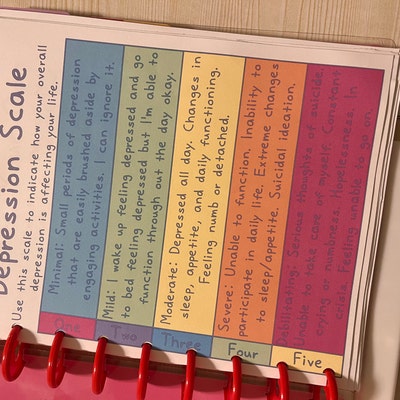 Depression Scale
Use this scale to indicate how your overall
depression is affecting your life.
One
Minimal: Small periods of depression
that are easily brushed aside by
engaging activities. I can ignore it.
Two
Mild: I wake up feeling depressed and go
to bed feeling depressed but I'm able to
function through out the day okay.
Three
Moderate: Depressed all day. Changes in
sleep, appetite, and daily functioning.
Feeling numb or detached.
Four
Severe: Unable to function. Inability to
participate in daily life. Extreme changes
to sleep/appetite. Suicidal ideation.
Five
Serious thoughts of suicide.
Unable to take care of self. Constant
numbness, hopelessness. In
unable to